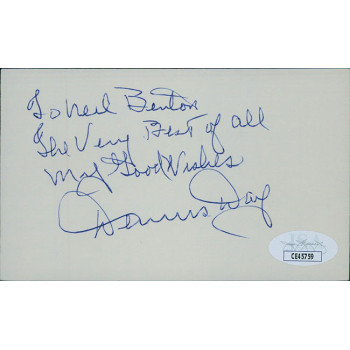 To Neil Benton
The Very Best of all
My Good Wishes
Dennis Day
CE45759